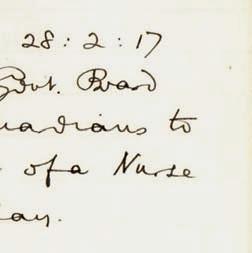 28 : 2 : 17
Govt. Board
uardians to
of a Nurse
ay.